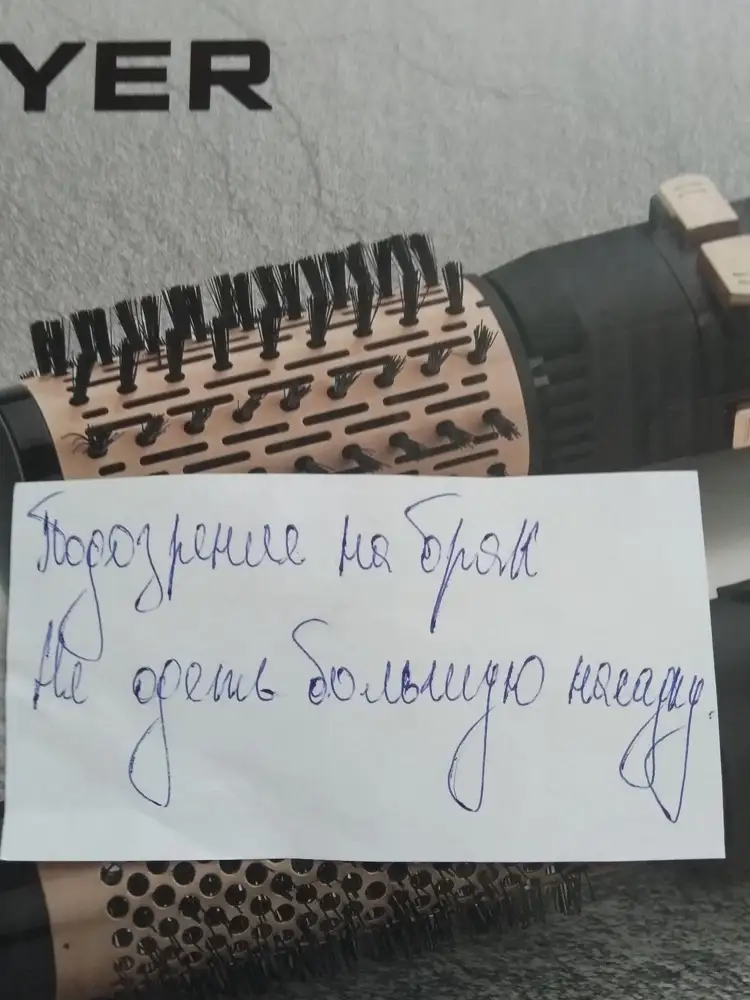 YER
Подозрение на брак
Не одеть большую насадку.